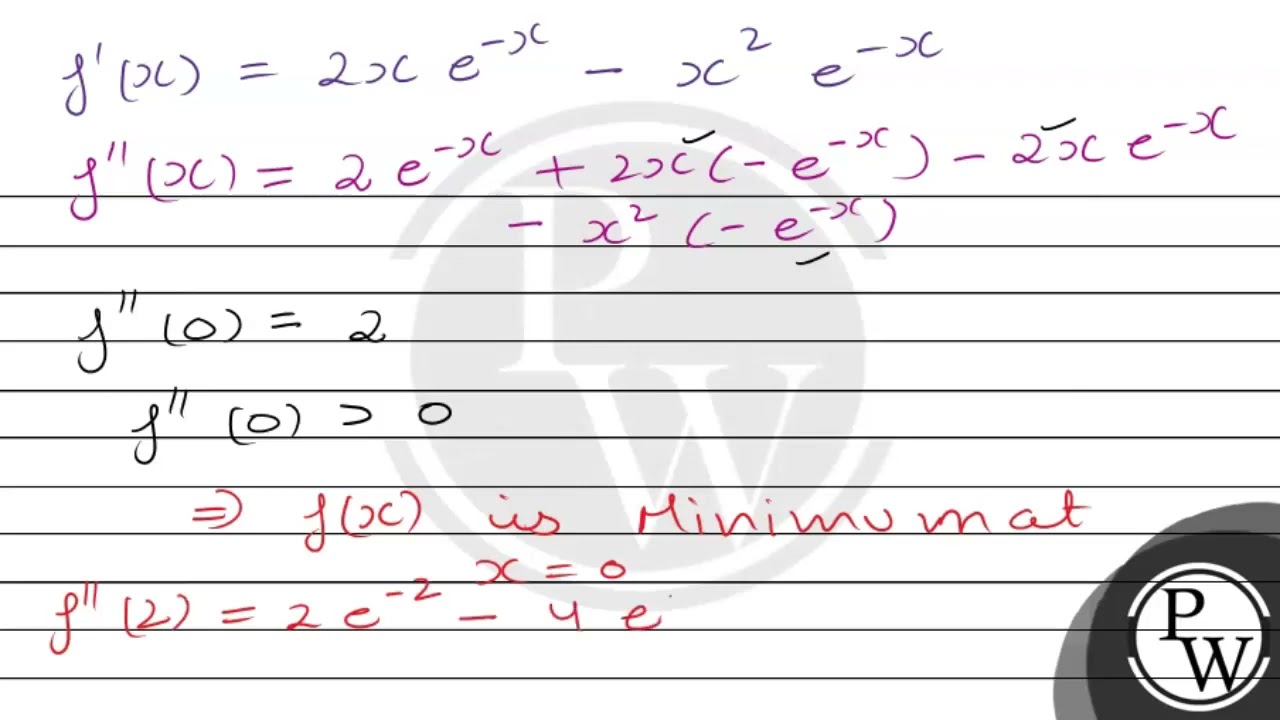 f'(x) = 2x e^{-x} - x^2 e^{-x}
f''(x) = 2 e^{-x} + 2x (- e^{-x}) - 2x e^{-x}
- x^2 (- e^{-x})
f''(0) = 2
f''(0) > 0
⇒ f(x) is Minimum at
x = 0
f''(2) = 2 e^{-2} - 4 e
P
W
P
W